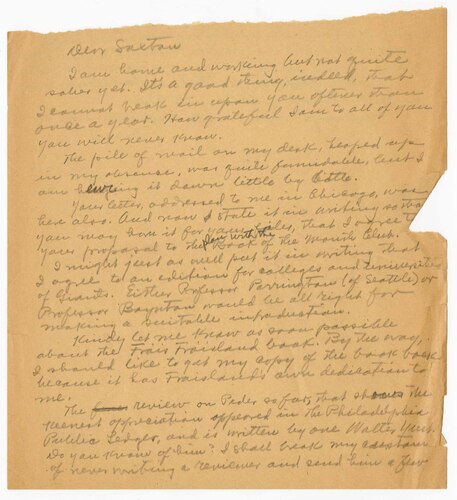 Dear Saxton
I am home and working but not quite
sober yet. It's a good thing, indeed, that
I cannot break in upon you oftener than
once a year. How grateful I am to all of you
you will never know.
The pile of mail on my desk, heaped up
in my absence, was quite formidable, but I
am hewing it down little by little.
Your letter, addressed to me in Chicago, was
here also. And now I state it in writing so that
you may have it for your files, that I agree to
your proposal to the plan with the Book of the Month Club.
I might just as well put it in writing that
I agree to an edition for colleges and universities
of Giants. Either Professor Parrington (of Seattle) or
Professor Boynton would be all right for
making a suitable introduction.
Kindly let me know as soon possible
about the Frais Fraisland book. By the way,
I should like to get my copy of the book back
because it has Fraisland's own dedication to
me.
The review on Peder so far, that shows the
keenest appreciation appeared in the Philadelphia
Public Ledger, and is written by one Walter
Do you know of him? I shall break my custom
of never writing a reviewer and send him a few